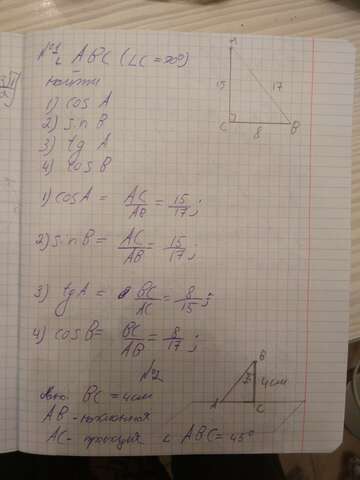 №1
∠ ABC (∠C = 90°)
найти
1) cos A
2) sin B
3) tg A
4) cos B
A
15
17
C
8
B
1) cos A = AC/AB = 15/17;
2) sin B = AC/AB = 15/17;
3) tg A = BC/AC = 8/15;
4) cos B = BC/AB = 8/17;
№2
BC = 4см
AB - наклонная
AC - проекция ∠ ABC = 45°
B
4см
A
C